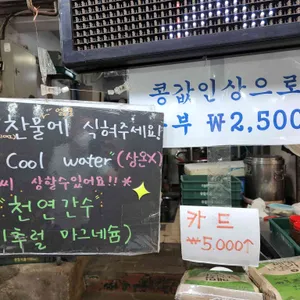 찬물에 식혀주세요!
Cool water (상온X)
상할수있어요!! *
천연간수
마그네슘)
콩값인상으로
부 ₩2,500
카드
₩5,000↑